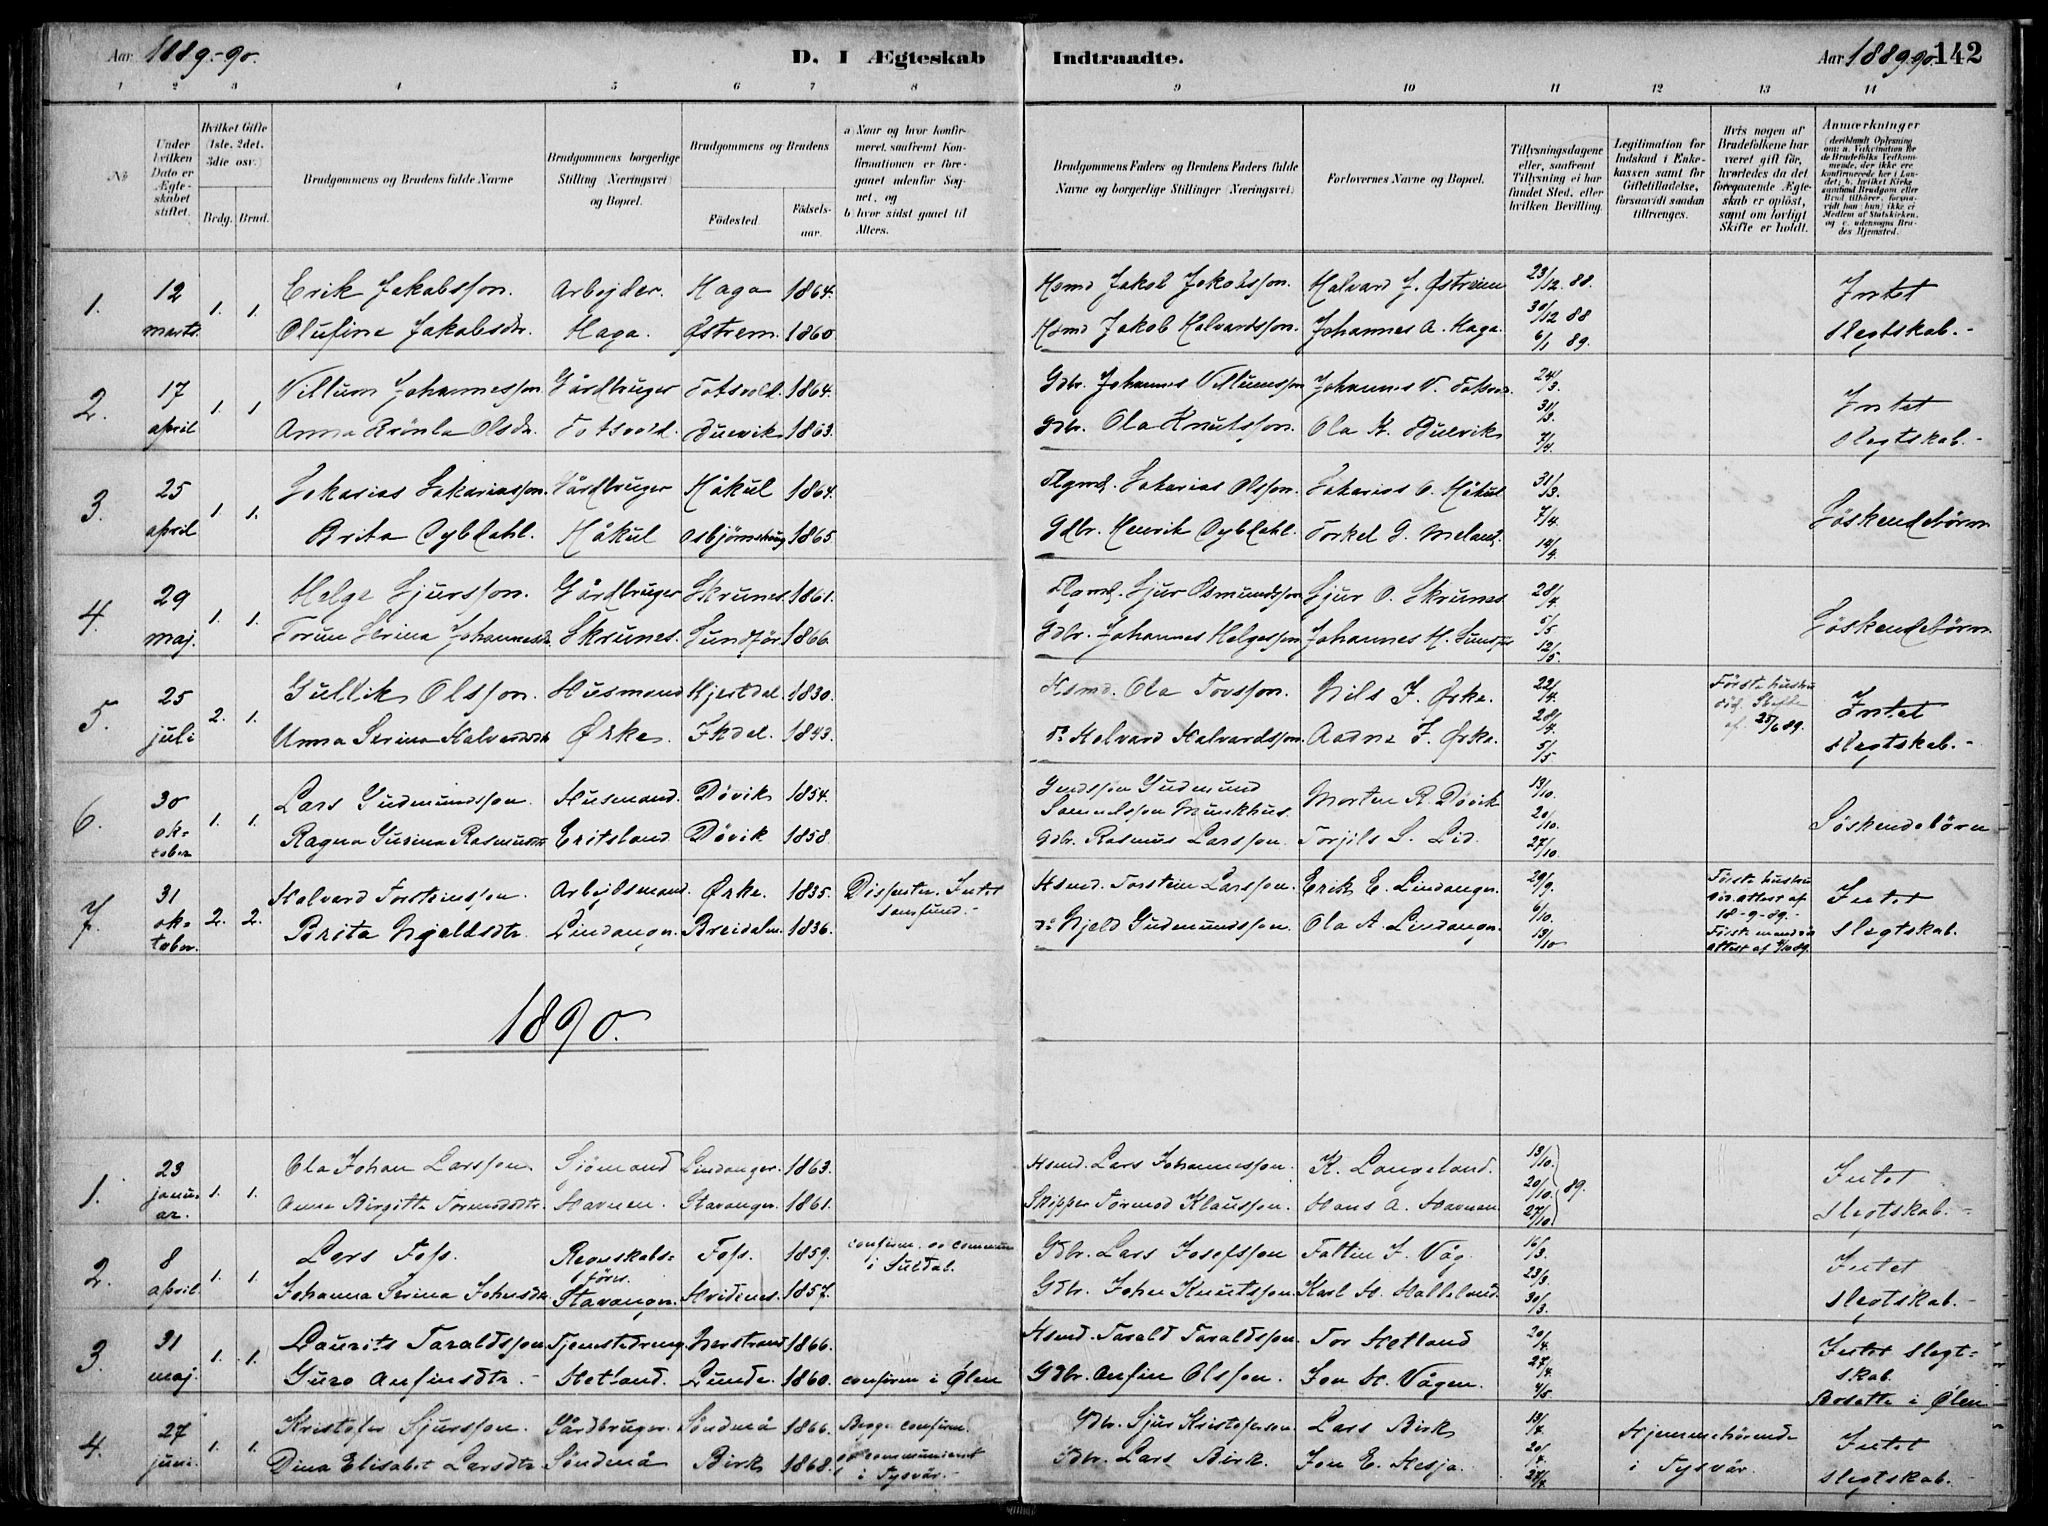 Aar 1889-90.
D. I Ægteskab
Indtraadte.
Aar 1889-90. 142
1 2 3 4 5 6 7 8
9 10 11 12 13 14
No
Under hvilken Dato er Ægteskabet stiftet.
Hvilket Gifte (1ste, 2det, 3die osv.)
Brdg. Brud.
Brudgommens og Brudens fulde Navne
Brudgommens borgerlige Stilling (Næringsvei) og Bopæl.
Brudgommens og Brudens
Fødested
Fødselsaar.
a) Naar og hvor konfirmeret, saafremt Konfirmationen er foregaaet udenfor Sognet, og
b) hvor sidst gaaet til Alters.
Brudgommens Faders og Brudens Faders fulde Navne og borgerlige Stillinger (Næringsvei)
Forlovernes Navne og Bopæl.
Tillysningsdagene eller, saafremt Tillysning ei har fundet Sted, efter hvilken Bevilling.
Legitimation for Indskud i Enkekassen samt for Giftetilladelse, forsaavidt saadan tiltrænges.
Hvis nogen af Brudefolkene har været gift før, hvorledes da det foregaaende Ægteskab er opløst, samt om lovligt Skifte er holdt.
Anmærkninger
(deriblandt Oplysning om: a. Vakcination for de Brudefolks Vedkommende, der ikke ere konfirmerede her i Landet; b. hvilket Kirkesamfund Brudgom eller Brud tilhører, forsaavidt han (hun) ikke er Medlem af Statskirken, og c. udensogns Brudes Hjemsted.
1. 12 marts 1. 1.
Erik Jakobsson. Arbejder. Haga 1864. Hsmd Jakob Jakobsson. Halvard J. Østrem 23/12 88.
Olufine Jakobsdr. Haga. Østrem. 1860. Hsmd Jakob Halvardsson. Johannes A. Haga. 30/12 88 6/1 89.
Intet Slegtskab.-
2. 17 april 1. 1
Villum Johannesson Gårdbruger Totsvold. 1864. Gdbr. Johannes Villumsson Johannes V. 24/3
Anna Olsdr. Totsvold. 1863. Gdbr. Ola Knutsson. Ola K. 31/3. 7/4.
Intet Slegtskab.-
3. 25 april 1. 1.
Sakarias Sakariasson. Gårdbruger Håkul 1864. Flgmd. Sakarias Olsson. Sakarias O. Håkul 31/3.
Brita Dybdahl. Håkul 1865. Gdbr. Henrik Dybdahl. Torkel G. Meland. 7/4. 14/4.
Søskendebørn
4. 29 maj. 1. 1.
Helge Sjursson. Gårdbruger Skrunes 1861. Flgmd. Sjur Osmundsson Sjur O. Skrunes 28/4.
Torun Serina Johannesdr. Skrunes. Sundfør 1866. Gdbr. Johannes Helgesson Johannes H. 5/5. 12/5.
Søskendebørn.
5. 25 juli 2. 1.
Gullik Olsson. Husmand Hjertdal. 1830. Hsmd. Ola Tovsson. Nils J. Ørke. 22/4.
Anna Serina Halvardsdr Ørke. 1843. do Halvard Halvardsson. Aadne J. Ørke. 28/4. 5/5
Første hustru død. Skifte af 25/6 89.
Intet Slegtskab.-
6. 30 oktober 1. 1.
Lars Gudmundsson. Husmand. Døvik 1854. Gmdsson Gudmund Samuelsson Munkhus. Morten R. Døvik 13/10.
Ragna Gurina Rasmusdr Eritsland Døvik 1858. Gdbr. Rasmus Larsson. Torjils S. Lid. 20/10. 27/10.
Søskendebørn
7. 31 oktober. 2. 2.
Halvard Torsteinsson. Arbejdsmand. Ørke. 1835. Dissenter. Intet samfund.- Hsmd. Torstein Larsson. Erik E. Lindanger. 29/9.
Brita Njeldsdtr. Lindanger. 1836. do Njeld Gudmundsson. Ola A. Lindanger. 6/10. 13/10
Første hustru død. attest af 18-9-89.- Første mand død attest af 89.
Intet Slegtskab.
1890.
1. 23 januar. 1. 1.
Ola Johan Larsson Sjømand Lindanger. 1863. Hsmd. Lars Johannesson. K. Langeland. 13/10.
Anna Birgitte Tormodsdtr. Havnen. Stavanger. 1861. Skipper Tormod Klausson. Hans A. Havnen 20/10. 27/10. 89.
Intet Slegtskab.-
2. 8 april. 1. 1.
Lars Foss. Regnskabsfører. Foss. 1859. confirm. og commun i Suldal. Gdbr. Lars Josefsson Faltin J. Våg 16/3.
Johanna Serina Johnsdr Stavanger. Hvidenes. 1857. Gdbr. John Knutsson Karl H. Halleland 23/3. 30/3.
Intet Slegtskab.-
3. 31 maj. 1. 1.
Laurits Taraldsson Tjenestedreng. Nerstrand 1866. Hsmd. Tarald Taraldsson. Tor Hetland 20/4.
Guro Anfinsdtr.- Hetland. Lunde. 1860. confirm i Ølen Gdbr. Anfin Olsson. Jon H. Vågen. 27/4. 4/5.
Intet Slegtskab. Bosatte i Ølen
4. 27 juni. 1. 1.
Kristofer Sjursson. Gårdbruger. Søndenå 1866. Begge confirm. og communicent i Tysvær.- Gdbr. Sjur Kristofersson Lars Birk 13/4.
Dina Elisabet Larsdtr Søndenå Birk 1868. Gdbr. Lars Birk. Jon E. Hesja. 20/4. 28/4.
Hjemmehørende i Tysvær.
Intet Slegtskab.